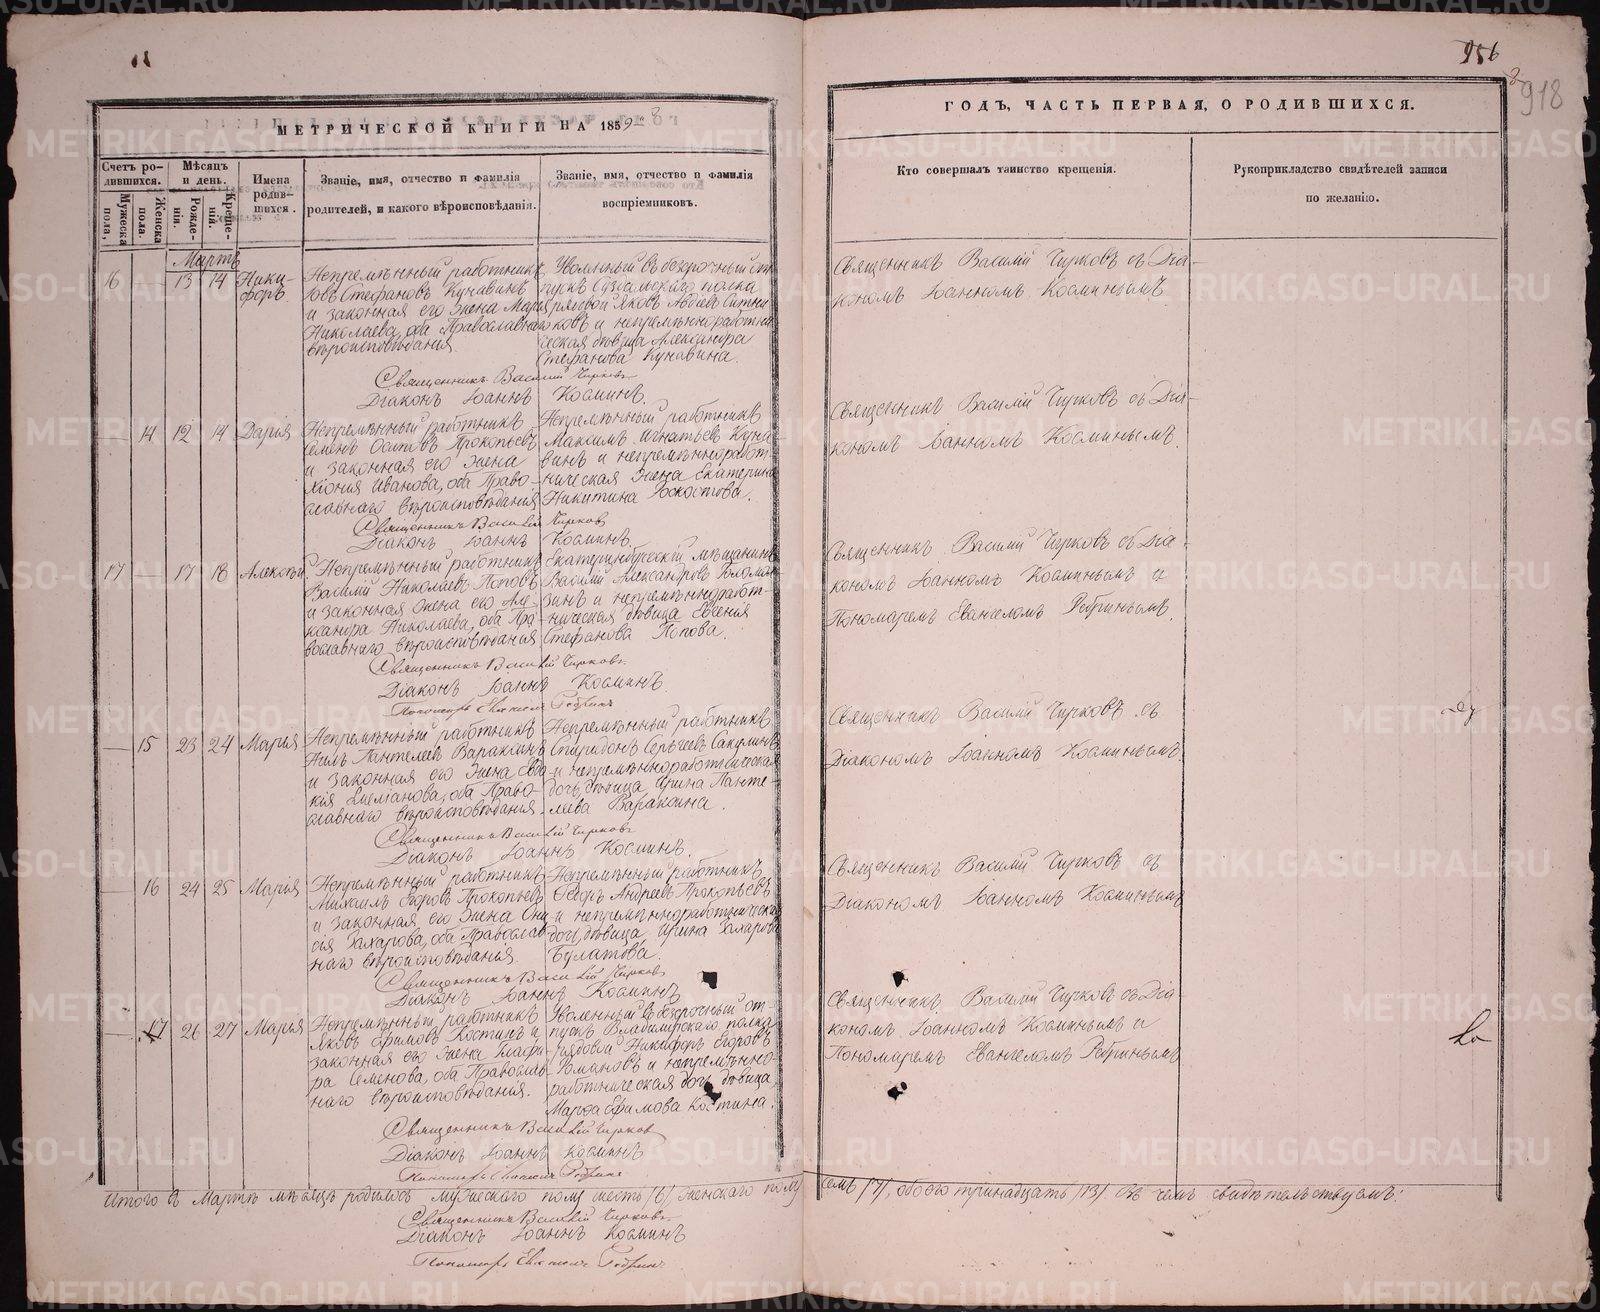 956
918
МЕТРИЧЕСКОЙ КНИГИ НА 1859
Счетъ ро-
дившихся.
Мужеска
пола,
Женска
пола.
Мѣсяцъ
и день.
Рожде-
нія.
Креще-
ній.
Имена
родив-
шихся.
Званіе, имя, отчество и фамилія
родителей, и какого вѣроисповѣданія.
Званіе, имя, отчество и фамилія
воспріемниковъ.
Мартъ
16 — 13 14 Ники-
форъ.
Непремѣнный работникъ
Стефановъ Кунавинъ
и законная его жена Марія
Николаева, оба Православнаго
вѣроисповѣданія.
Уволенный въ безсрочный от-
пускъ Суздальскаго полка
рядовой Яковъ Авдѣевъ Ситни-
ковъ и непремѣнноработни-
ческая дѣвица Александра
Стефанова Кунавина.
Священникъ Василій Чирковъ
Діаконъ Іоаннъ Косминъ.
— 14 12 14 Дарія
Непремѣнный работникъ
Семенъ Осиповъ Прокопьевъ
и законная его жена
Хіонія Иванова, оба Право-
славнаго вѣроисповѣданія
Непремѣнный работникъ
Максимъ Игнатьевъ Куна-
винъ и непремѣнноработ-
ническая жена Екатерина
Никитина
Священникъ Василій Чирковъ
Діаконъ Іоаннъ Косминъ.
17 — 17 18 Алексѣй
Непремѣнный работникъ
Василій Николаевъ Поповъ
и законная жена его Але-
ксандра Николаева, оба Пра-
вославнаго вѣроисповѣданія
Екатеринбургскій мѣщанинъ
Василій Александровъ
зинъ и непремѣнноработ-
ническая дѣвица Евгенія
Стефанова Попова.
Священникъ Василій Чирковъ.
Діаконъ Іоаннъ Косминъ.
Пономарь Евангелъ Ребринъ
— 15 23 24 Марья
Непремѣнный работникъ
Нилъ Пантелеевъ Вараксинъ
и законная его жена Евдо-
кія оба Право-
славнаго вѣроисповѣданія.
Непремѣнный работникъ
Спиридонъ Сергѣевъ Сакулинъ
и непремѣнноработническая
дочь, дѣвица Ирина Панте-
леева Вараксина.
Священникъ Василій Чирковъ
Діаконъ Іоаннъ Косминъ.
— 16 24 25 Марія
Непремѣнный работникъ
Михаилъ Ѳедоровъ Прокопьевъ
и законная его жена Они-
сія Захарова, оба Православ-
наго вѣроисповѣданія.
Непремѣнный работникъ
Ѳедоръ Андреевъ Прокопьевъ
и непремѣнноработническая
дочь, дѣвица Ирина Захарова
Булатова.
Священникъ Василій Чирковъ
Діаконъ Іоаннъ Косминъ
— 17 26 27 Марья
Непремѣнный работникъ
Яковъ Ефимовъ Костинъ и
законная его жена Глафи-
ра Семенова, оба Православ-
наго вѣроисповѣданія.
Уволенный въ безсрочный от-
пускъ Владимірскаго полка
рядовой Никифоръ Егоровъ
Романовъ и непремѣнно-
работническая дочь, дѣвица
Марфа Ефимова Костина.
Священникъ Василій Чирковъ
Діаконъ Іоаннъ Косминъ
Пономарь Евангелъ Ребринъ
Итого въ Мартѣ мѣсяцѣ родилось мужескаго полу шесть /6/ женскаго полу
Священникъ Василій Чирковъ
Діаконъ Іоаннъ Косминъ
Пономарь Евангелъ Ребринъ
ГОДЪ, ЧАСТЬ ПЕРВАЯ, О РОДИВШИХСЯ.
Кто совершалъ таинство крещенія.
Рукоприкладство свидѣтелей записи
по желанію.
Священникъ Василій Чирковъ съ Діа-
кономъ Іоанномъ Косминымъ.
Священникъ Василій Чирковъ съ Діа-
кономъ Іоанномъ Косминымъ.
Священникъ Василій Чирковъ съ Діа-
кономъ Іоанномъ Косминымъ и
Пономаремъ Евангеломъ Ребринымъ.
Священникъ Василій Чирковъ съ
Діакономъ Іоанномъ Косминымъ.
Священникъ Василій Чирковъ съ
Діакономъ Іоанномъ Косминымъ
Священникъ Василій Чирковъ съ Діа-
кономъ Іоанномъ Косминымъ и
Пономаремъ Евангеломъ Ребринымъ
семь /7/, обоего тринадцать /13/. Въ чемъ свидѣтельствуемъ:
METRIKI.GASO-URAL.RU